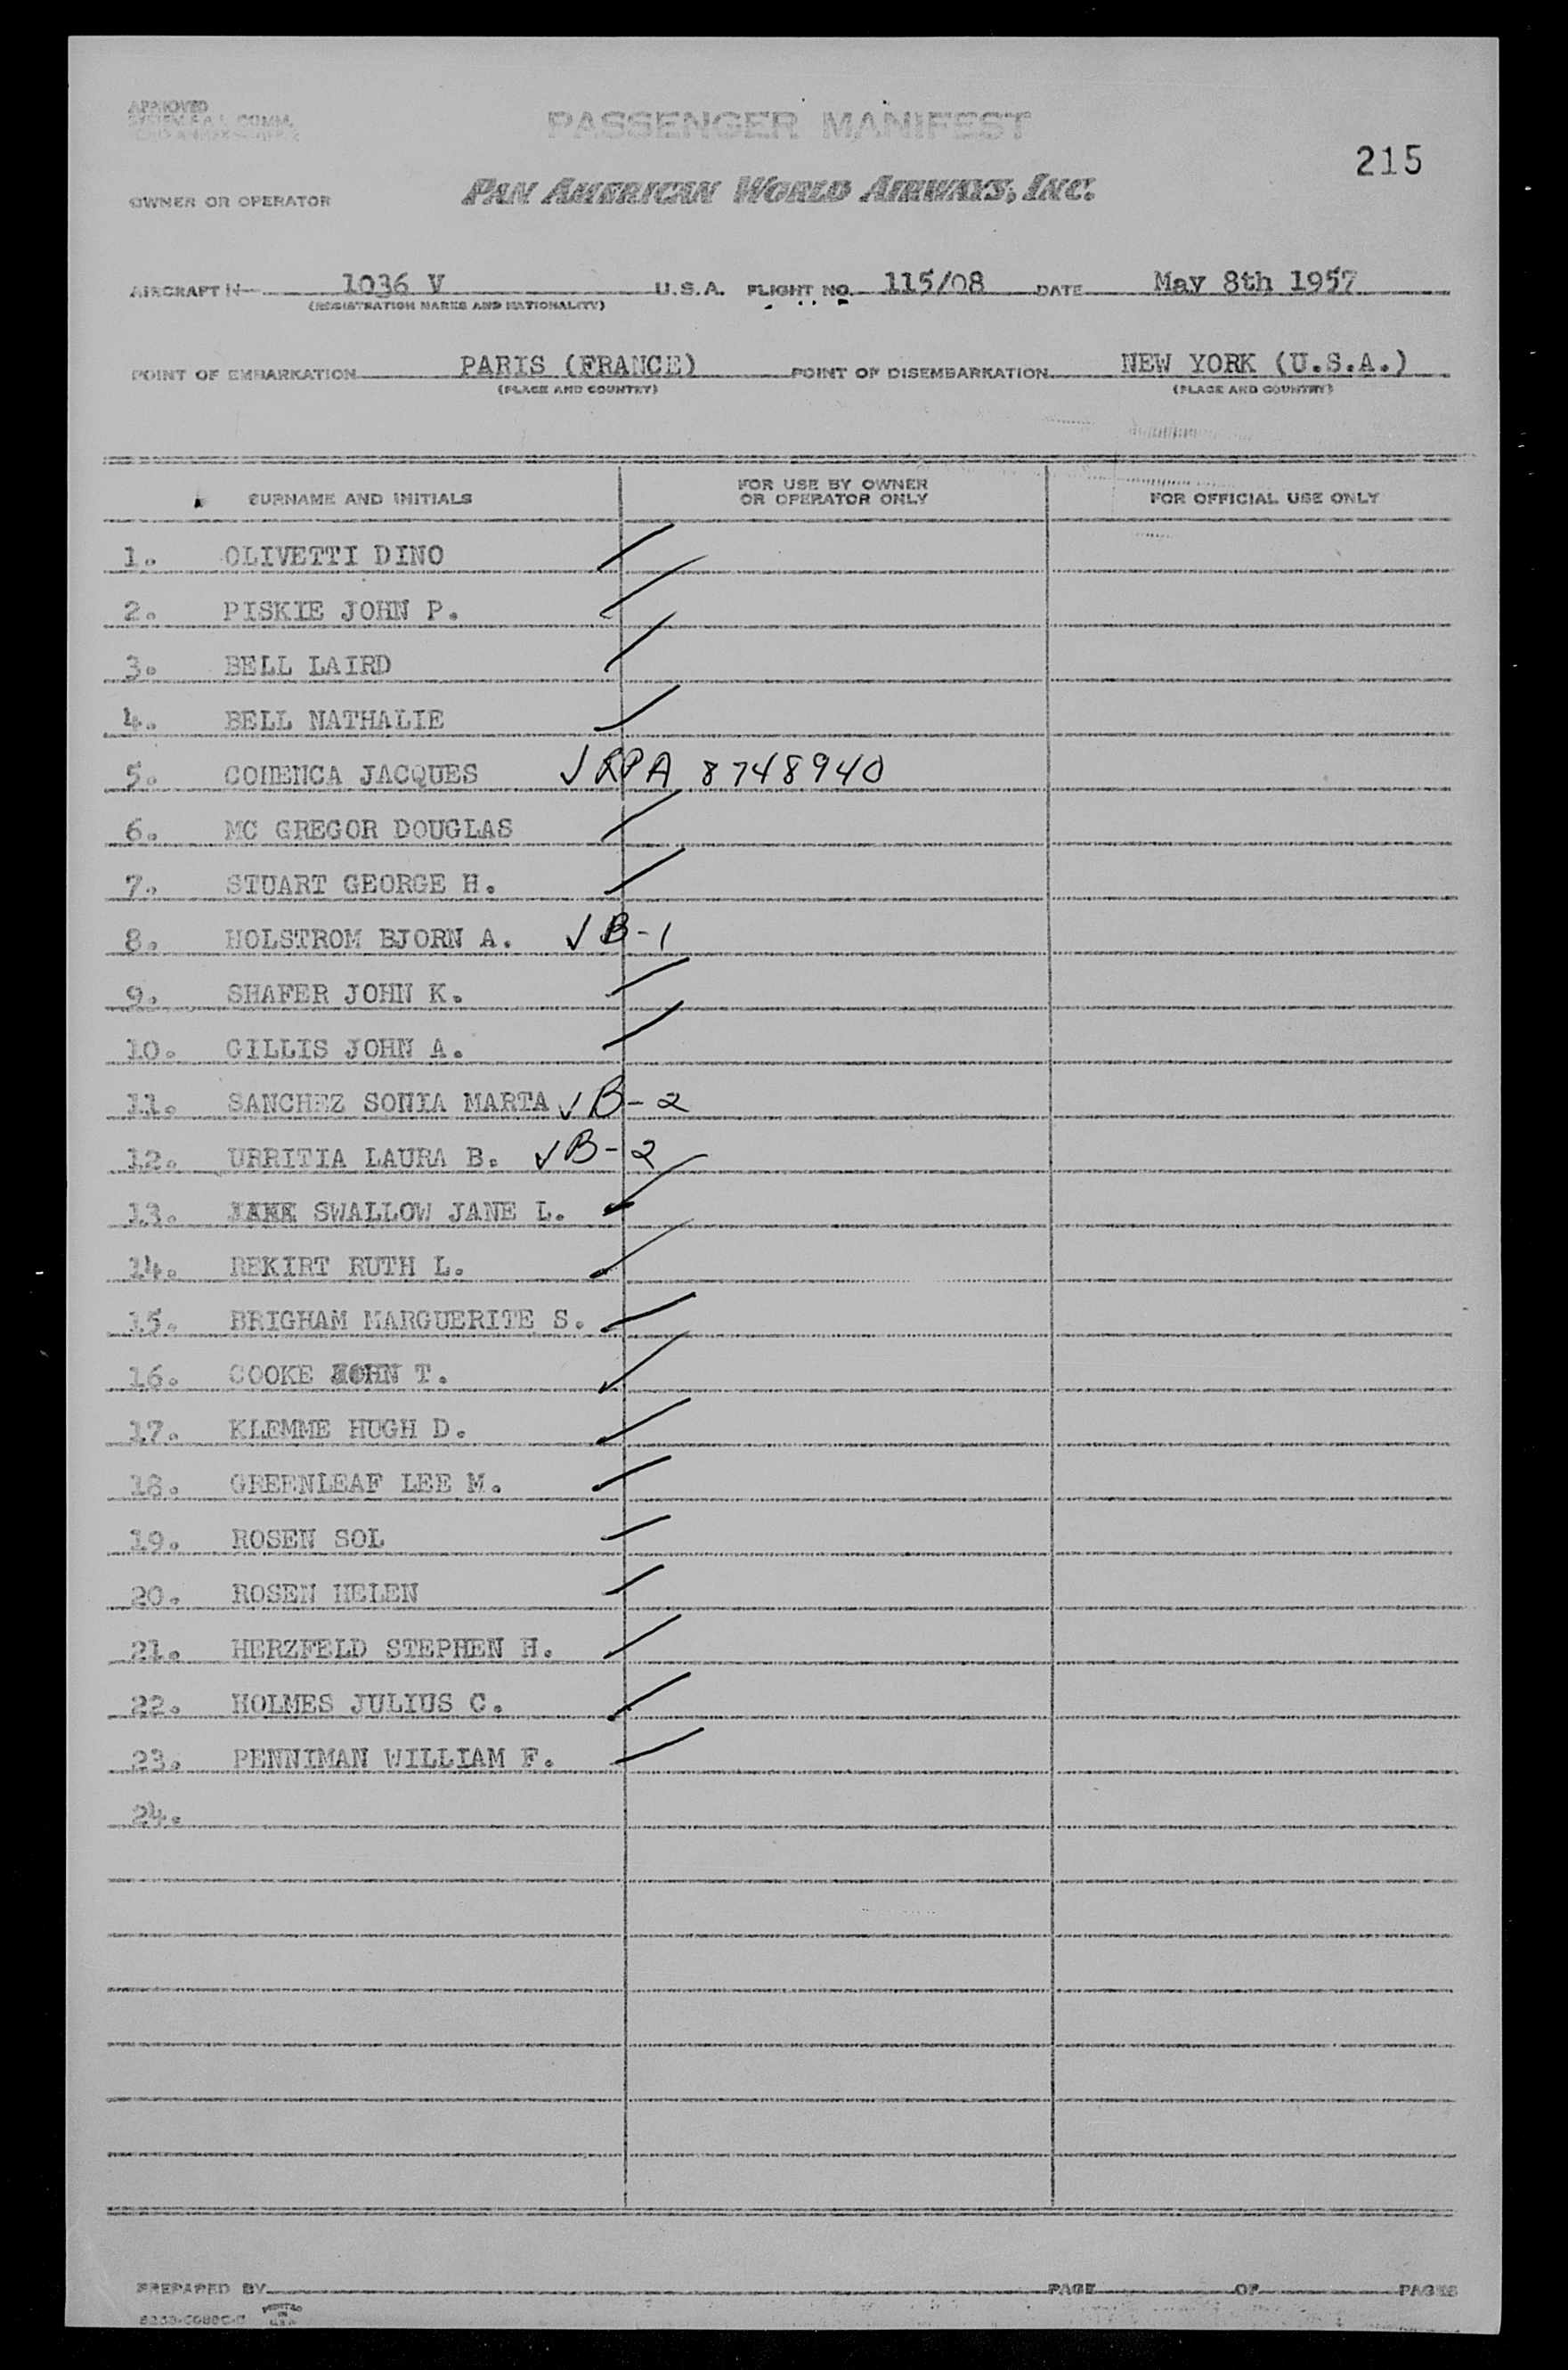 APPROVED
PASSENGER MANIFEST
215
OWNER OR OPERATOR PAN AMERICAN WORLD AIRWAYS, INC.
AIRCRAFT N 1036 V U.S.A. FLIGHT NO. 115/08 DATE May 8th 1957
(REGISTRATION MARKS AND NATIONALITY)
POINT OF EMBARKATION PARIS (FRANCE) POINT OF DISEMBARKATION NEW YORK (U.S.A.)
(PLACE AND COUNTRY) (PLACE AND COUNTRY)
SURNAME AND INITIALS FOR USE BY OWNER OR OPERATOR ONLY FOR OFFICIAL USE ONLY
1. OLIVETTI DINO
2. PISKIE JOHN P.
3. BELL LAIRD
4. BELL NATHALIE
5. JACQUES √ RPA 8748940
6. MC GREGOR DOUGLAS
7. STUART GEORGE H.
8. HOLSTROM BJORN A. √ B-1
9. SHAFER JOHN K.
10. GILLIS JOHN A.
11. SANCHEZ SONIA MARTA √ B-2
12. URRITIA LAURA B. √ B-2
13. SWALLOW JANE L.
14. REKIRT RUTH L.
15. BRIGHAM MARGUERITE S.
16. COOKE JOHN T.
17. KLEMME HUGH D.
18. GREENLEAF LEE M.
19. ROSEN SOL
20. ROSEN HELEN
21. HERZFELD STEPHEN H.
22. HOLMES JULIUS C.
23. PENNIMAN WILLIAM F.
24.
PREPARED BY PAGE OF PAGES
PRINTED IN U.S.A.